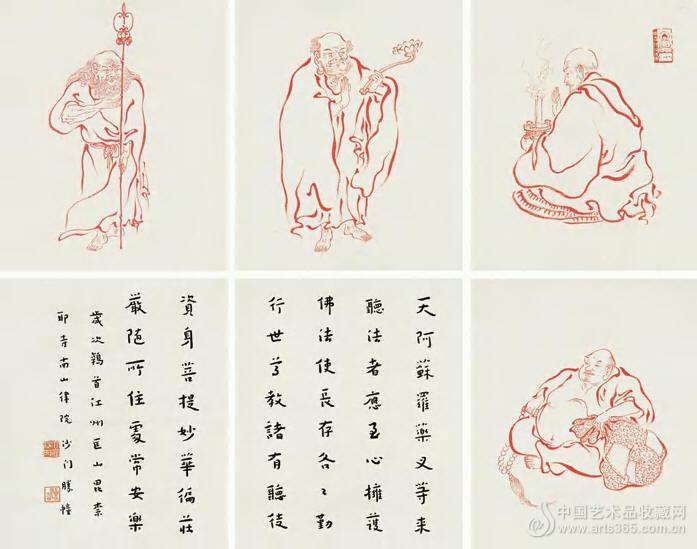 天阿蘇羅藥叉等来
聽法者應至心擁護
佛法使長存各〻勤
行世尊教諸有聽徒
資身菩提妙華徧莊
嚴随所住處常安樂
歲次鶉首江州匡山毘柰
耶寺南山律院沙门勝幢
中国艺术品收藏网
www.arts365.com.cn